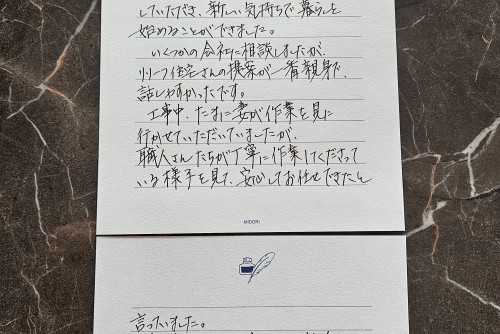 していただき、新しい気持ちで暮らしを
始めることができました。
いくつかの会社に相談しましたが、
リリーフ住宅さんの提案が一番親身で、
話しやすかったです。
工事中、たまに妻が作業を見に
行かせていただいていましたが、
職人さんたちが丁寧に作業してくださって
いる様子を見て、安心してお任せできたと
MIDORI
言っていました。